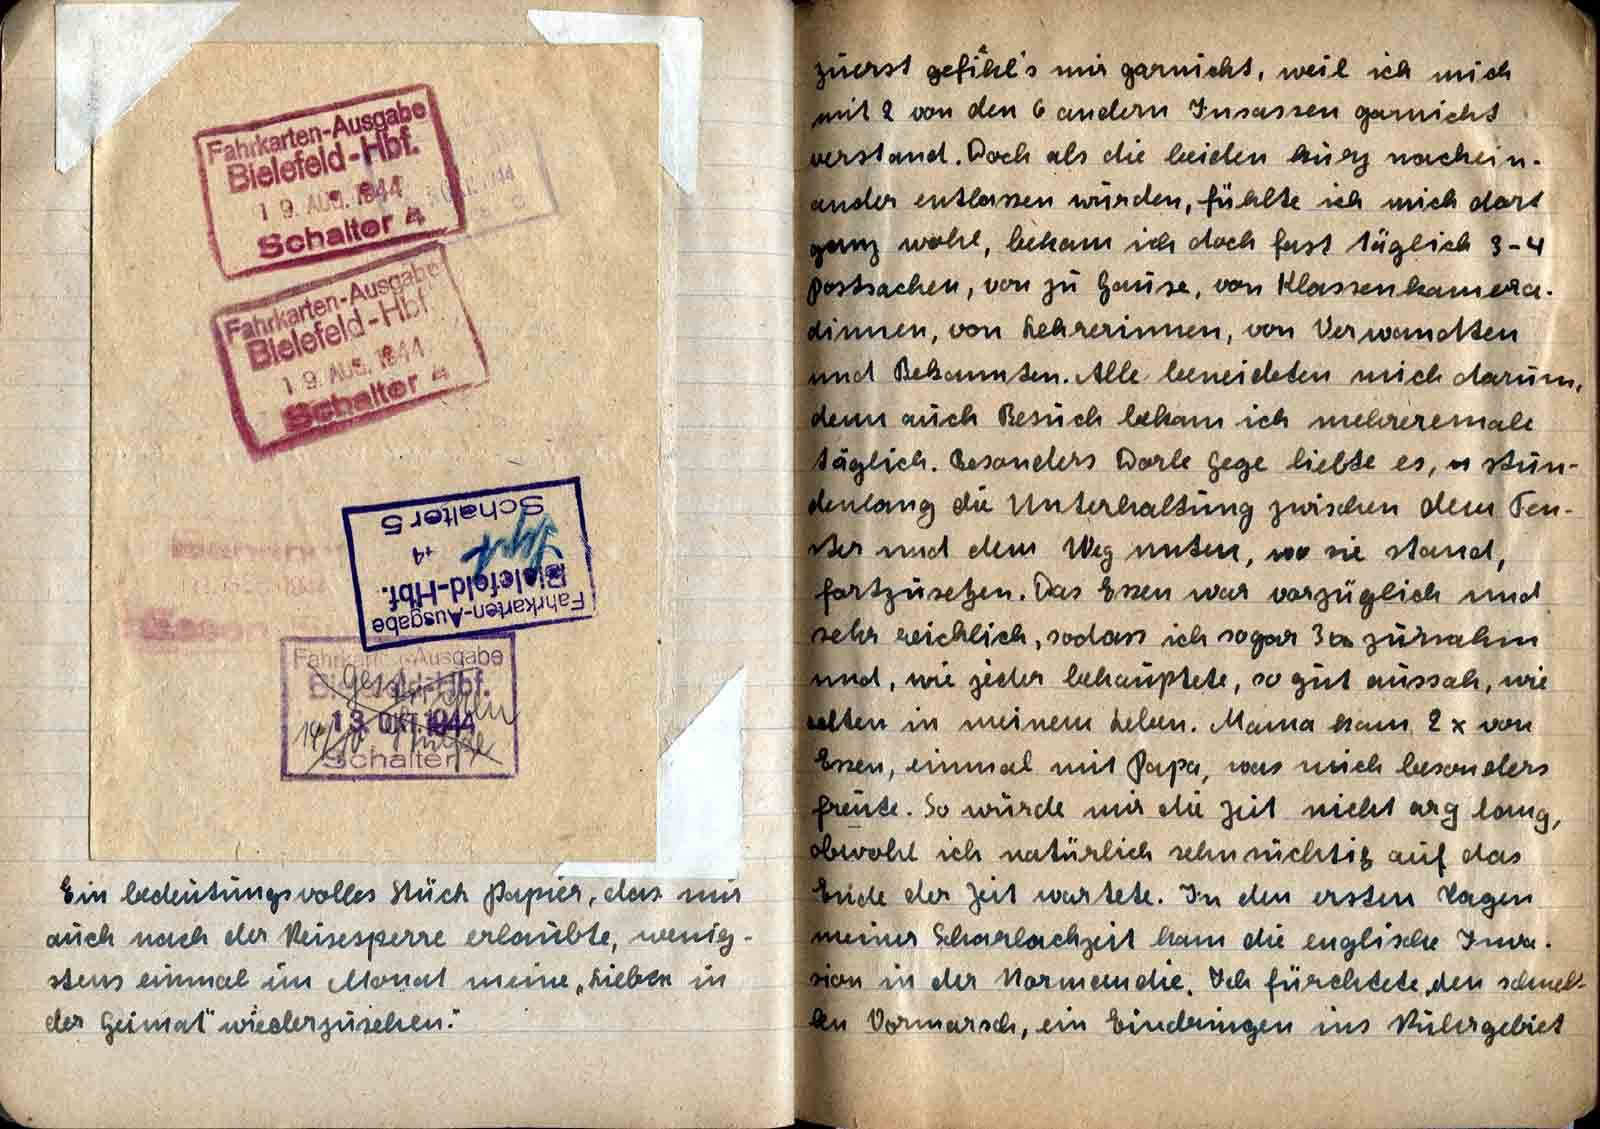 Fahrkarten-Ausgabe
Bielefeld-Hbf.
19. AUG. 1944
Schalter 4
Fahrkarten-Ausgabe
Bielefeld-Hbf.
19. AUG. 1944
Schalter 4
Fahrkarten-Ausgabe
Bielefeld-Hbf.
Schalter 5
Fahrkarten-Ausgabe
Bielefeld-Hbf.
13. OKT. 1944
Schalter
Ein bedeutungsvolles Stück Papier, das mir
auch nach der Reisesperre erlaubte, wenig-
stens einmal im Monat meine „Lieben in
der Heimat" wiederzusehen."
zuerst gefiel's mir garnicht, weil ich mich
mit 2 von den 6 andern Insassen garnicht
verstand. Doch als die beiden kurz nachein-
ander entlassen wurden, fühlte ich mich dort
ganz wohl, bekam ich doch fast täglich 3-4
Postsachen, von zu Hause, von Klassenkamera-
dinnen, von Lehrerinnen, von Verwandten
und Bekannten. Alle beneideten mich darum,
denn auch Besuch bekam ich mehreremale
täglich. Besonders Dorle Hege liebte es, stun-
denlang die Unterhaltung zwischen dem Fen-
ster und dem Weg unten, wo sie stand,
fortzusetzen. Das Essen war vorzüglich und
sehr reichlich, sodass ich sogar zunahm
und, wie jeder behauptete, so gut aussah, wie
selten in meinem Leben. Mama kam 2 x von
Essen, einmal mit Papa, was mich besonders
freute. So wurde mir die Zeit nicht arg lang,
obwohl ich natürlich sehnsüchtig auf das
Ende der Zeit wartete. In den ersten Tagen
meiner Scharlachzeit kam die englische Inva-
sion in der Normandie. Ich fürchtete, den schnel-
len Vormarsch, ein Eindringen ins Ruhrgebiet